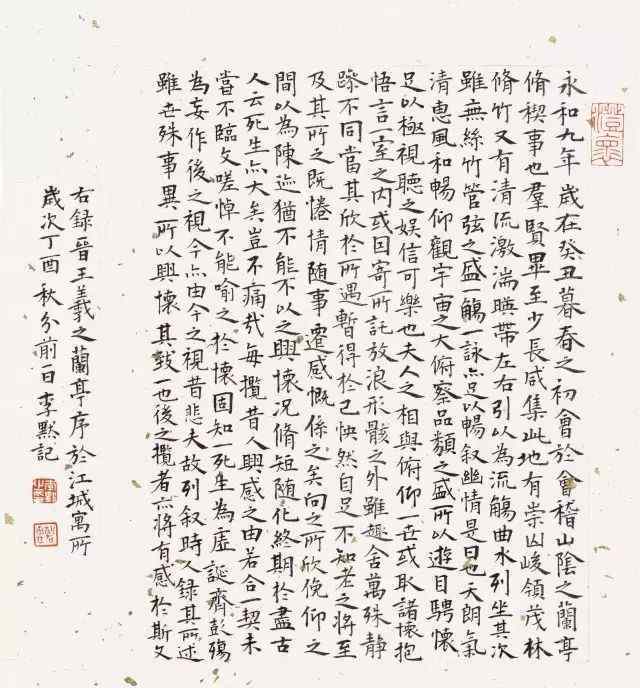 永和九年歲在癸丑暮春之初會於會稽山陰之蘭亭
脩禊事也羣賢畢至少長咸集此地有崇山峻領茂林
脩竹又有清流激湍暎帶左右引以為流觴曲水列坐其次
雖無絲竹管弦之盛一觴一詠亦足以暢叙幽情是日也天朗氣
清惠風和暢仰觀宇宙之大俯察品類之盛所以遊目騁懷
足以極視聽之娛信可樂也夫人之相與俯仰一世或取諸懷抱
悟言一室之內或因寄所託放浪形骸之外雖趣舍萬殊靜
躁不同當其欣於所遇暫得於己怏然自足不知老之將至
及其所之既惓情隨事遷感慨係之矣向之所欣俛仰之
間以為陳迹猶不能不以之興懷況脩短隨化終期於盡古
人云死生亦大矣豈不痛哉每攬昔人興感之由若合一契未
嘗不臨文嗟悼不能喻之於懷固知一死生為虛誕齊彭殤
為妄作後之視今亦由今之視昔悲夫故列叙時人錄其所述
雖世殊事異所以興懷其致一也後之攬者亦將有感於斯文
右錄晉王羲之蘭亭序於江城寓所
歲次丁酉秋分前一日李默記